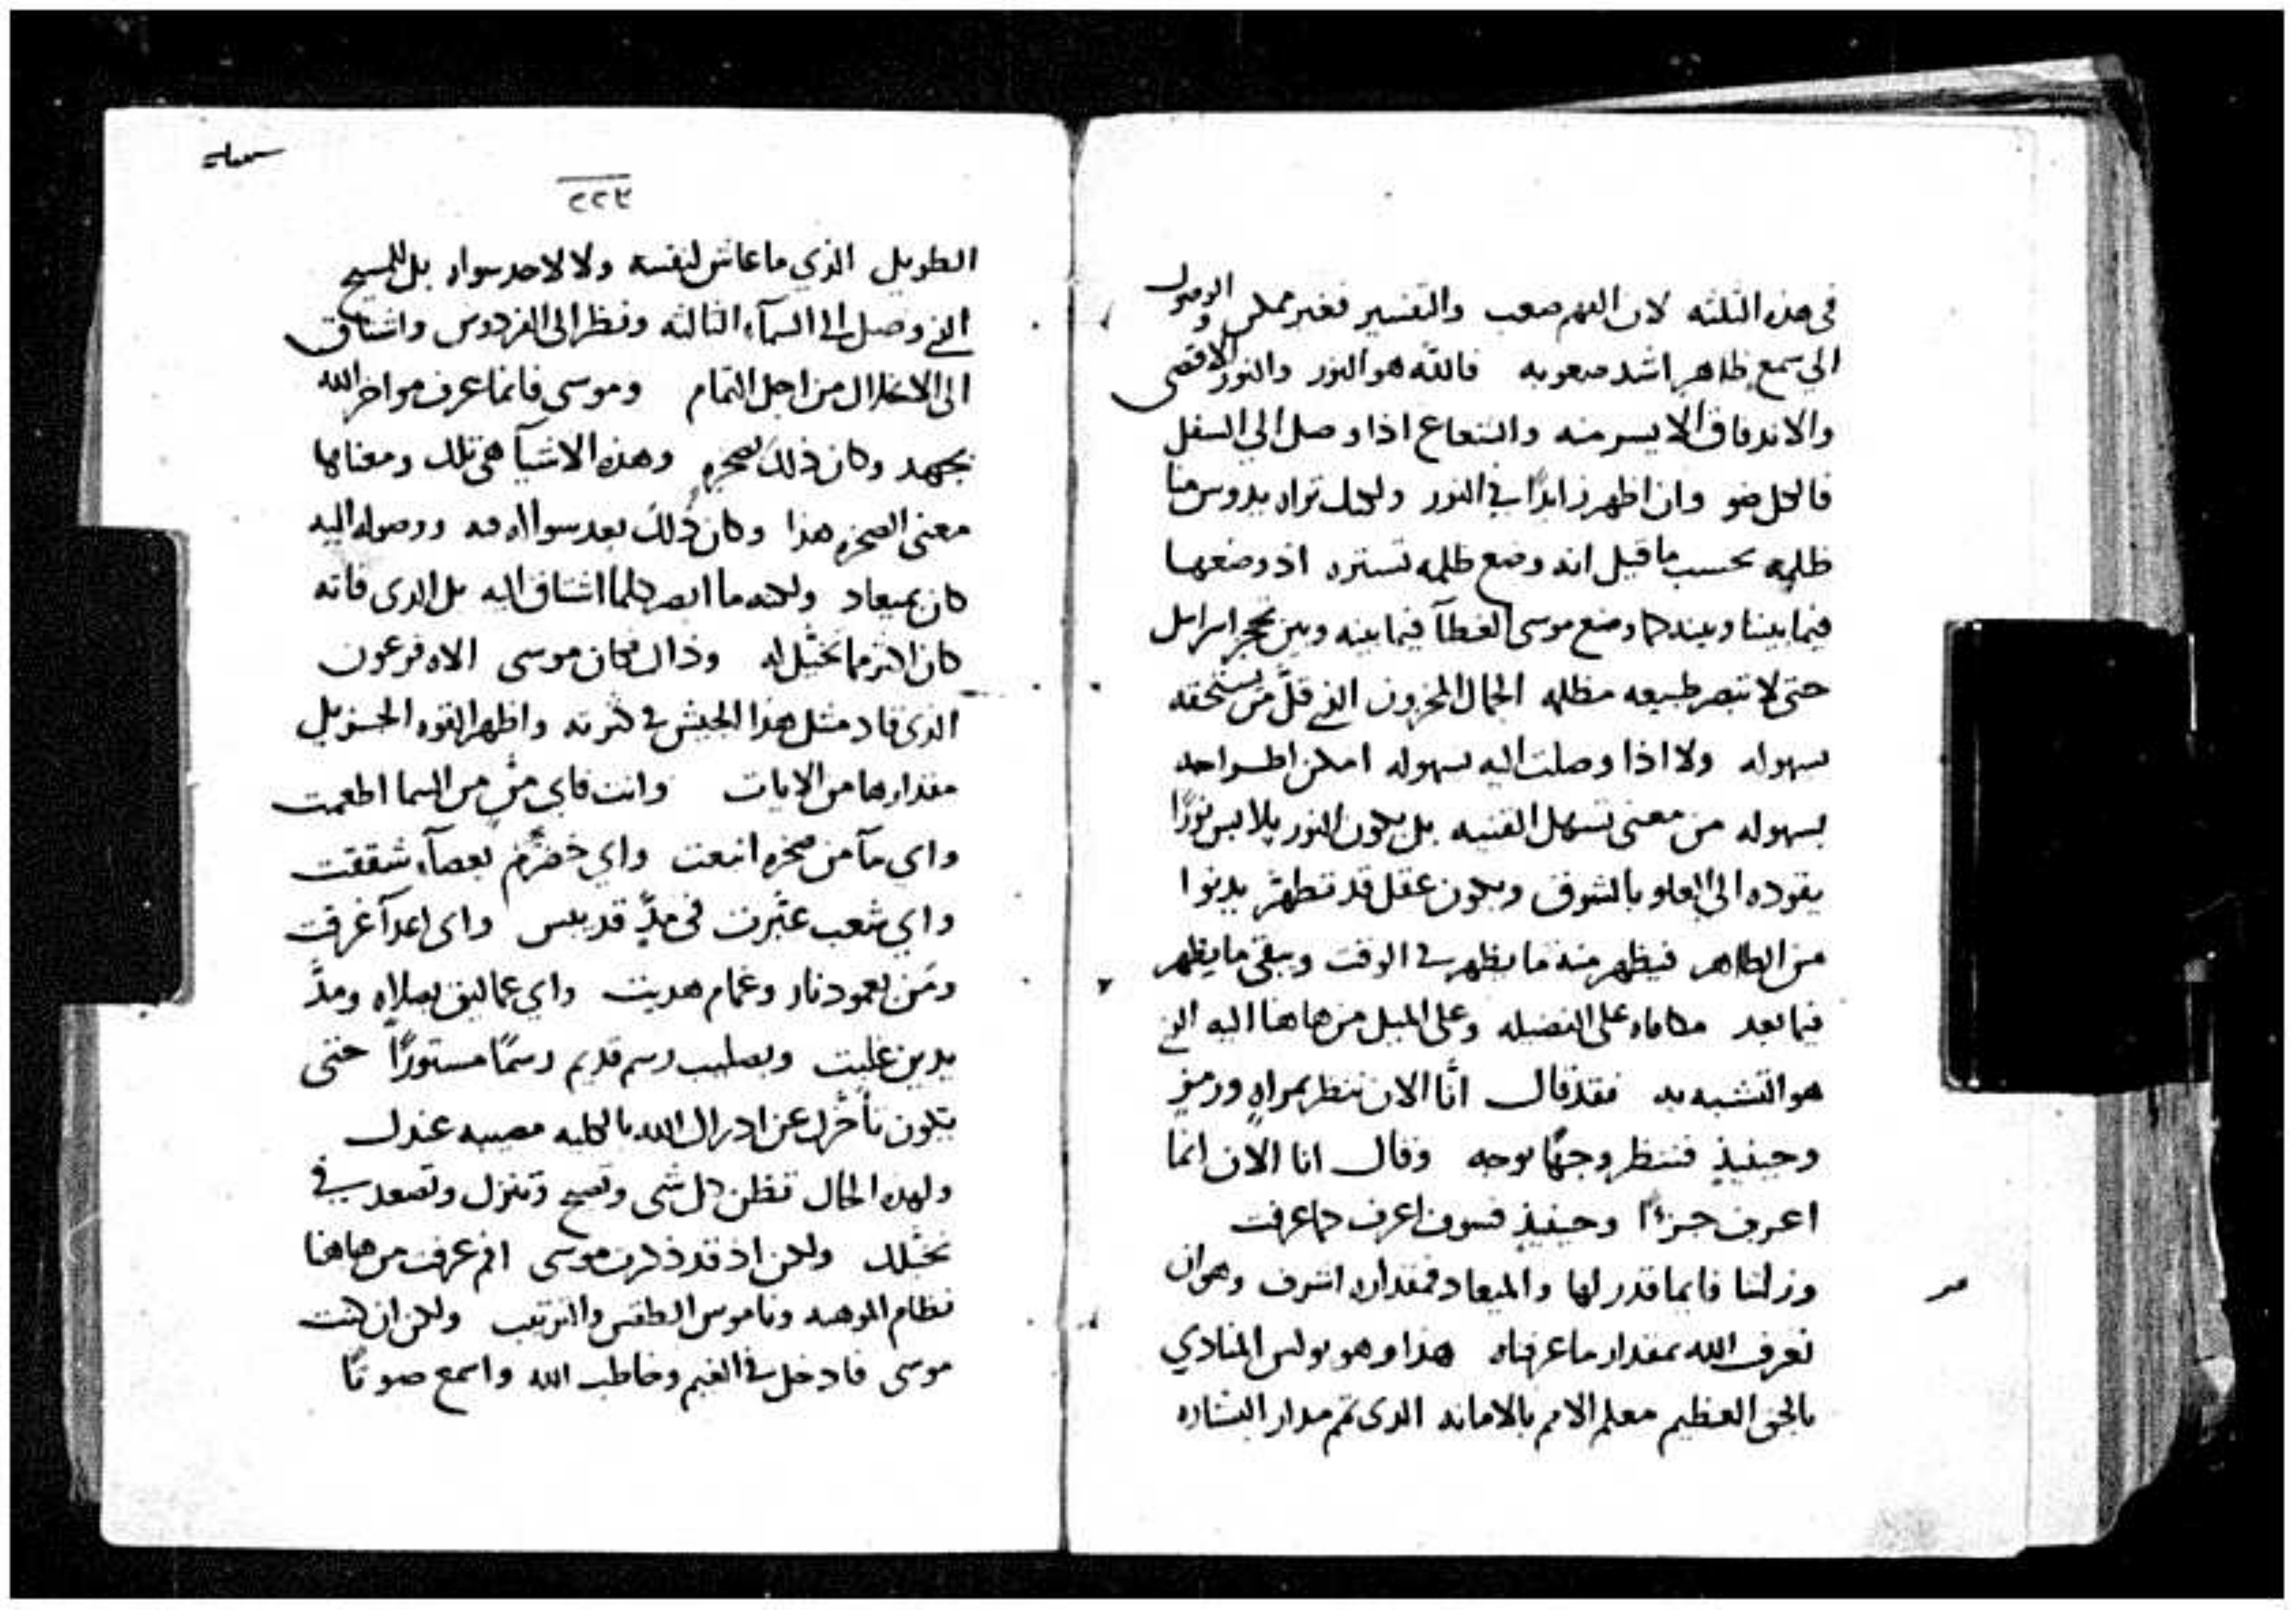 في هذه الثلثه لان الفهم صعب والتفسير فغير ممكن والوصول
الي سمع ظاهر اشد صعوبه فالله هو النور والنور الاقصى
والاندفاق الايسر منه والشعاع اذا وصل الي السفل
فالكل ضو وان اظهر زايدًا في النور ولعلك تراه يدوس منا
ظلمه بحسب ما قيل انه وضع ظلمه تستره اذ وضعها
فيما بيننا وبينه كما وضع موسى الغطآ فيما بينه وبين تحجر اسرايل
حتى لا تبصر طبيعه مظلمه الجمال المخزون الذي قلَّ من يستحقه
بسهوله ولا اذا وصلت اليه بسهوله امكن اطراحه
بسهوله من معنى تسهل القنيه بل يكون النور يلابس نورًا
يقوده الى العلو بالشوق ويكون عقل قد تطهّر يدنوا
من الطاهر فيظهر منه ما يظهر في الوقت ويبقى ما يظهر
فيما بعد مكافاه على الفضيله وعلى الميل من هاهنا اليه الذي
هو التشبه به فقد قال انّا الان ننظر بمراهٍ ورمزٍ
وحينيذٍ فننظر وجهًا بوجه وقال انا الان انما
اعرف جزءًا وحينيذٍ فسوف اعرف كما عرفت
وزلتنا فايما قدر لها والميعاد فمقداره اشرف وهو ان
نعرف الله بمقدار ما عرفناه هذا وهو بولس المنادي
بالحق العظيم معلم الامم بالامانه الذى تمم مدار البشاره
٢٢٣
الطويل الذي ما عاش لنفسه ولا لاحد سواه بل للمسيح
الذي وصل الى السمآء الثالثه ونظر الى الفردوس واشتاق
الى الانحلال من اجل التمام وموسى فانما عرف مواخر الله
بجهد وكان ذلك بصخره وهذه الاشيآ هي تلك ومعناها
معنى الصخره هذا وكان ذلك بعد سواله فيه ووصوله اليه
كان بميعاد ولكنه ما ابصر كلما اشتاق اليه بل الذى فاته
كان اكثر مما تخيّل له وذاك فكان موسى الاه فرعون
الذى قاد مثل هذا الجيش في كثرته واظهر القوه الجزيل
مقدارها من الايات وانت فاي منٍّ من السما اطعمت
واي مآ من صخره انبعت واي خضرَّم بعصآء شققت
واي شعب عبّرت في مآءٍ قد يبس واى اعدآ غرقت
ومَن بعمود نار وغمام هديت واي عماليق بصلاهٍ ومدِّ
يدين غلبت وبصليب رسم قديم رسمًا مستورًا حتى
يكون تأخّرك عن ادراك الله بالكليه مصيبه عندك
ولهذه الحال تظن كل شى وتصيح وتنزل وتصعد في
تخيّلك ولكن اذ قد ذكرت موسى افم عرفت من هاهنا
نظام الموهبه وناموس الطقس والترتيب ولكن ان كنت
موسى فادخل في الغيم وخاطب الله واسمع صوتًا